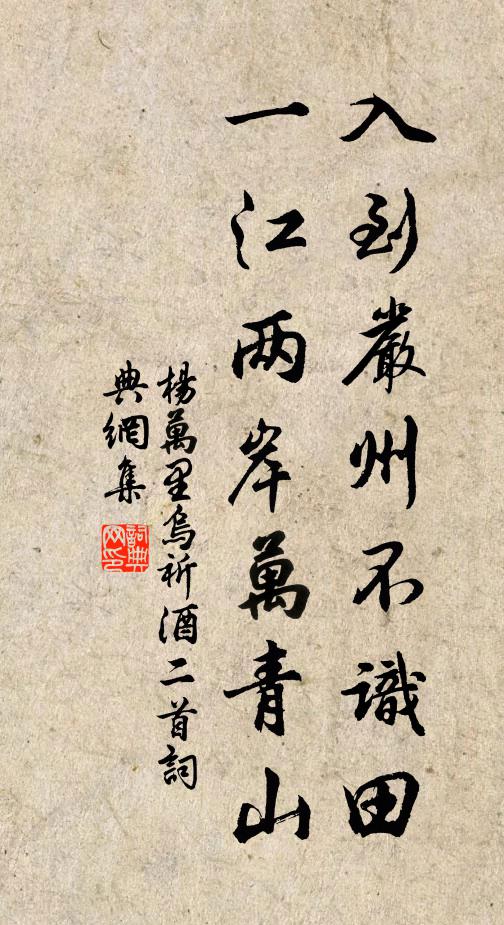 入到嚴州不識田
一江两岸萬青山
楊萬里烏祈酒二首詞
典網集
詞典
网印